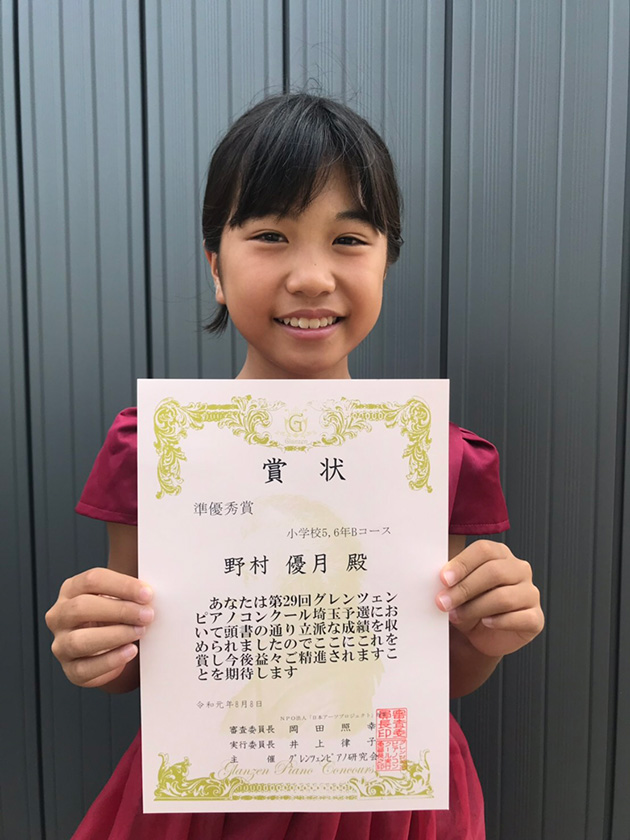 G
賞状
準優秀賞
小学校5,6年Bコース
野村 優月 殿
あなたは第29回グレンツェン
ピアノコンクール埼玉予選にお
いて頭書の通り立派な成績を収
められましたのでここにこれを
賞し今後益々ご精進されますこ
とを期待します
令和元年8月8日
NPO法人「日本アーツプロジェクト」
審査委員長 岡田照幸
実行委員長 井上律子
主催 グレンツェンピアノ研究会
Glanzen Piano Concours